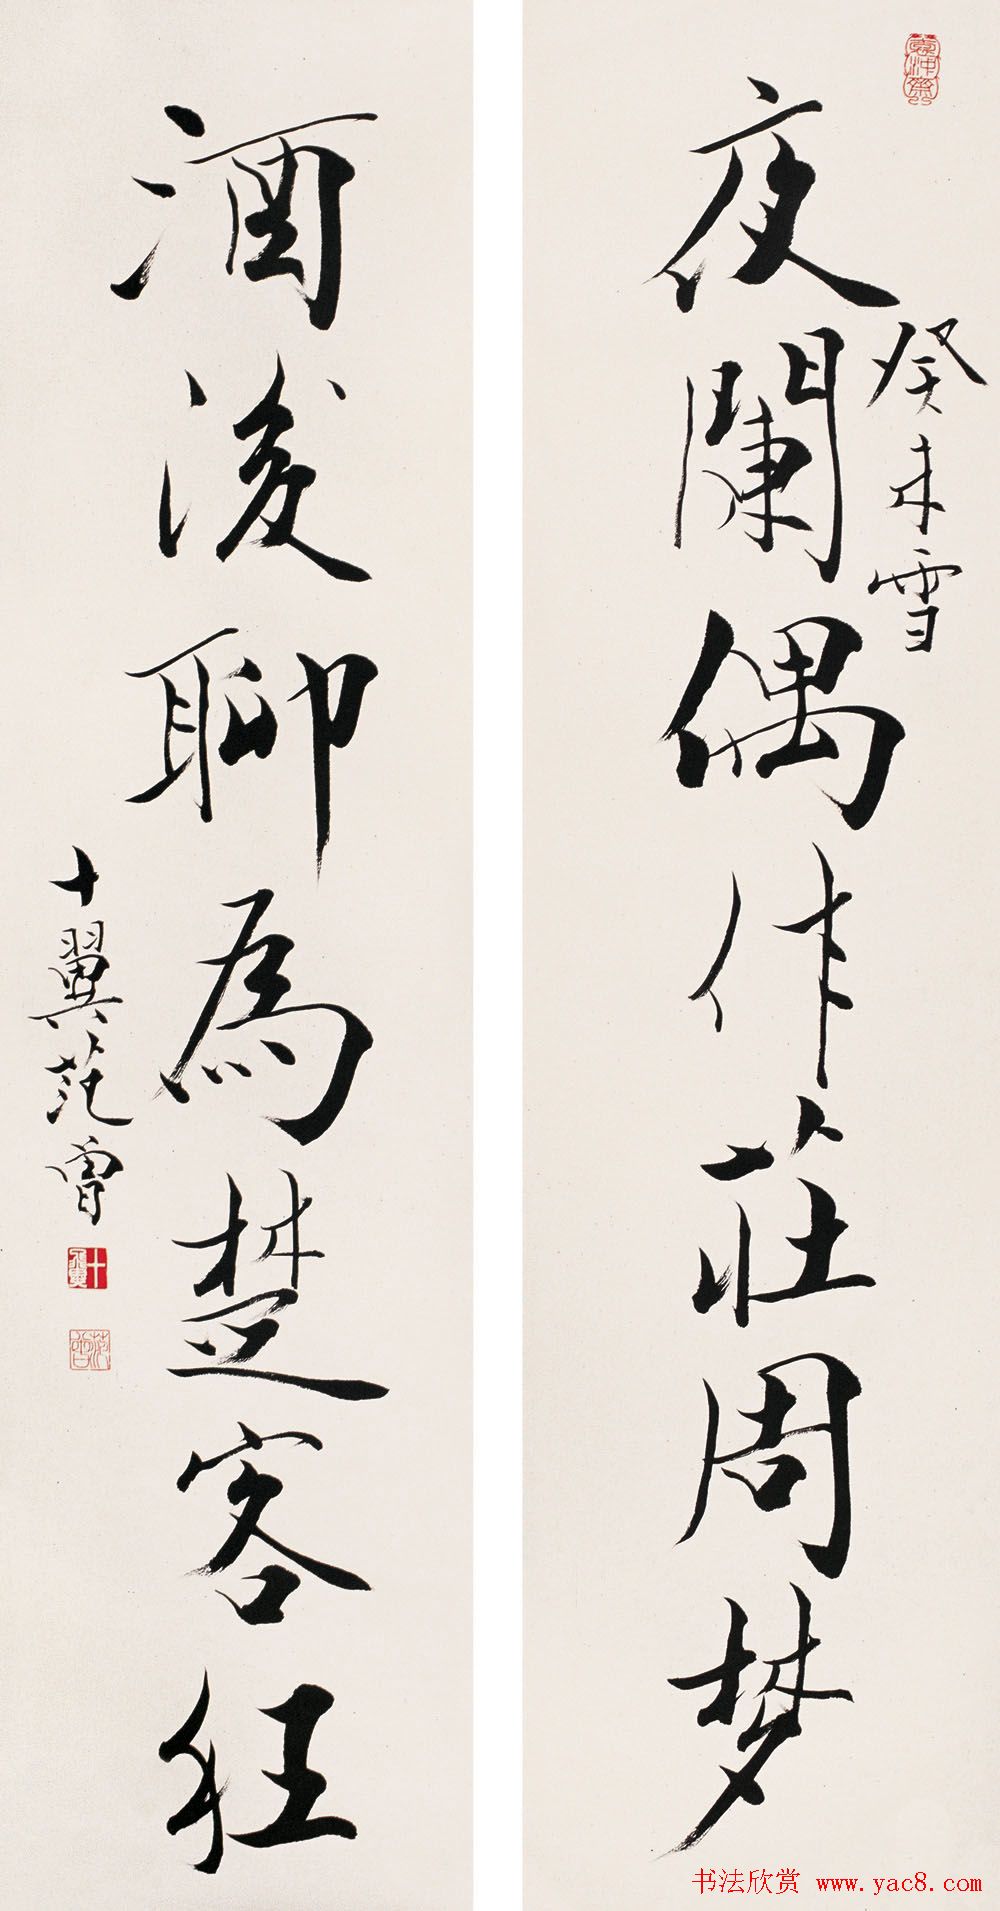 癸未雪
夜闌偶作莊周梦
酒後聊為楚客狂
十翼范曾
十翼
范曾
书法欣赏 www.yac8.com